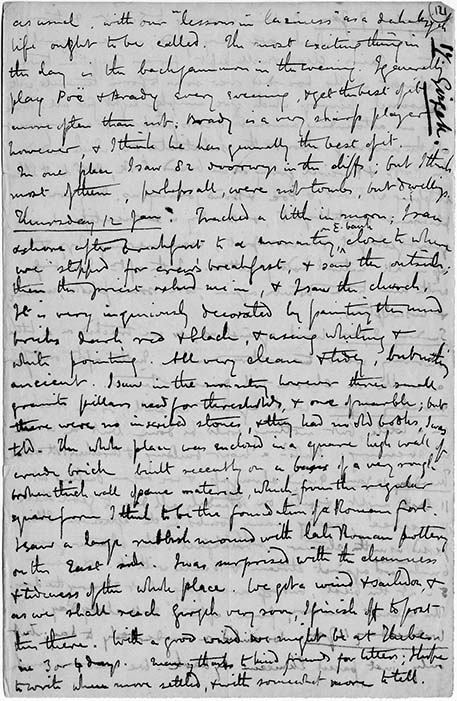 (12)
as usual with our "lessons in laziness" as a dahabiyeh
Girgeh
life ought to be called. The most exciting thing in
the day is the backgammon in the evening. I generally
play Poë & Brady every evening, & get the best of it
more often than not: Brady is a very sharp player
however & I think he has generally the best of it.
In one place I saw 82 doorways in the cliffs; but I think
most of them, perhaps all, were not tombs, but dwellings.
Thursday 12 Jan. Tracked a little in morn; I ran
E. bank
ashore after breakfast to a monastery, close to where
we stopped for crew's breakfast, & saw the outside;
then the priest asked me in, & I saw the church.
It is very ingeniously decorated by painting the mud
bricks dark red & black, & using whiting &
white pointing. All very clean & tidy, but nothing
ancient. I saw in the monastery however three small
granite pillars used for thresholds, & one of marble; but
there were no inscribed stones, & they had no old books, I was
told. The whole place was enclosed in a square high wall of
crude brick built recently on a basis of a very rough
broken thick wall of same material, which from the regular
square form I think to be the foundation of a Roman fort.
I saw a large rubbish mound with late Roman pottery
on the East side. I was surprised with the cleanness
& tidiness of the whole place. We got a wind & sailed on, &
as we shall reach Girgeh very soon, I finish off to post
this there. With a good wind we might be at Thebes
in 3 or 4 days. Many thanks to kind friends for letters; I hope
to write when more settled, & with somewhat more to tell.